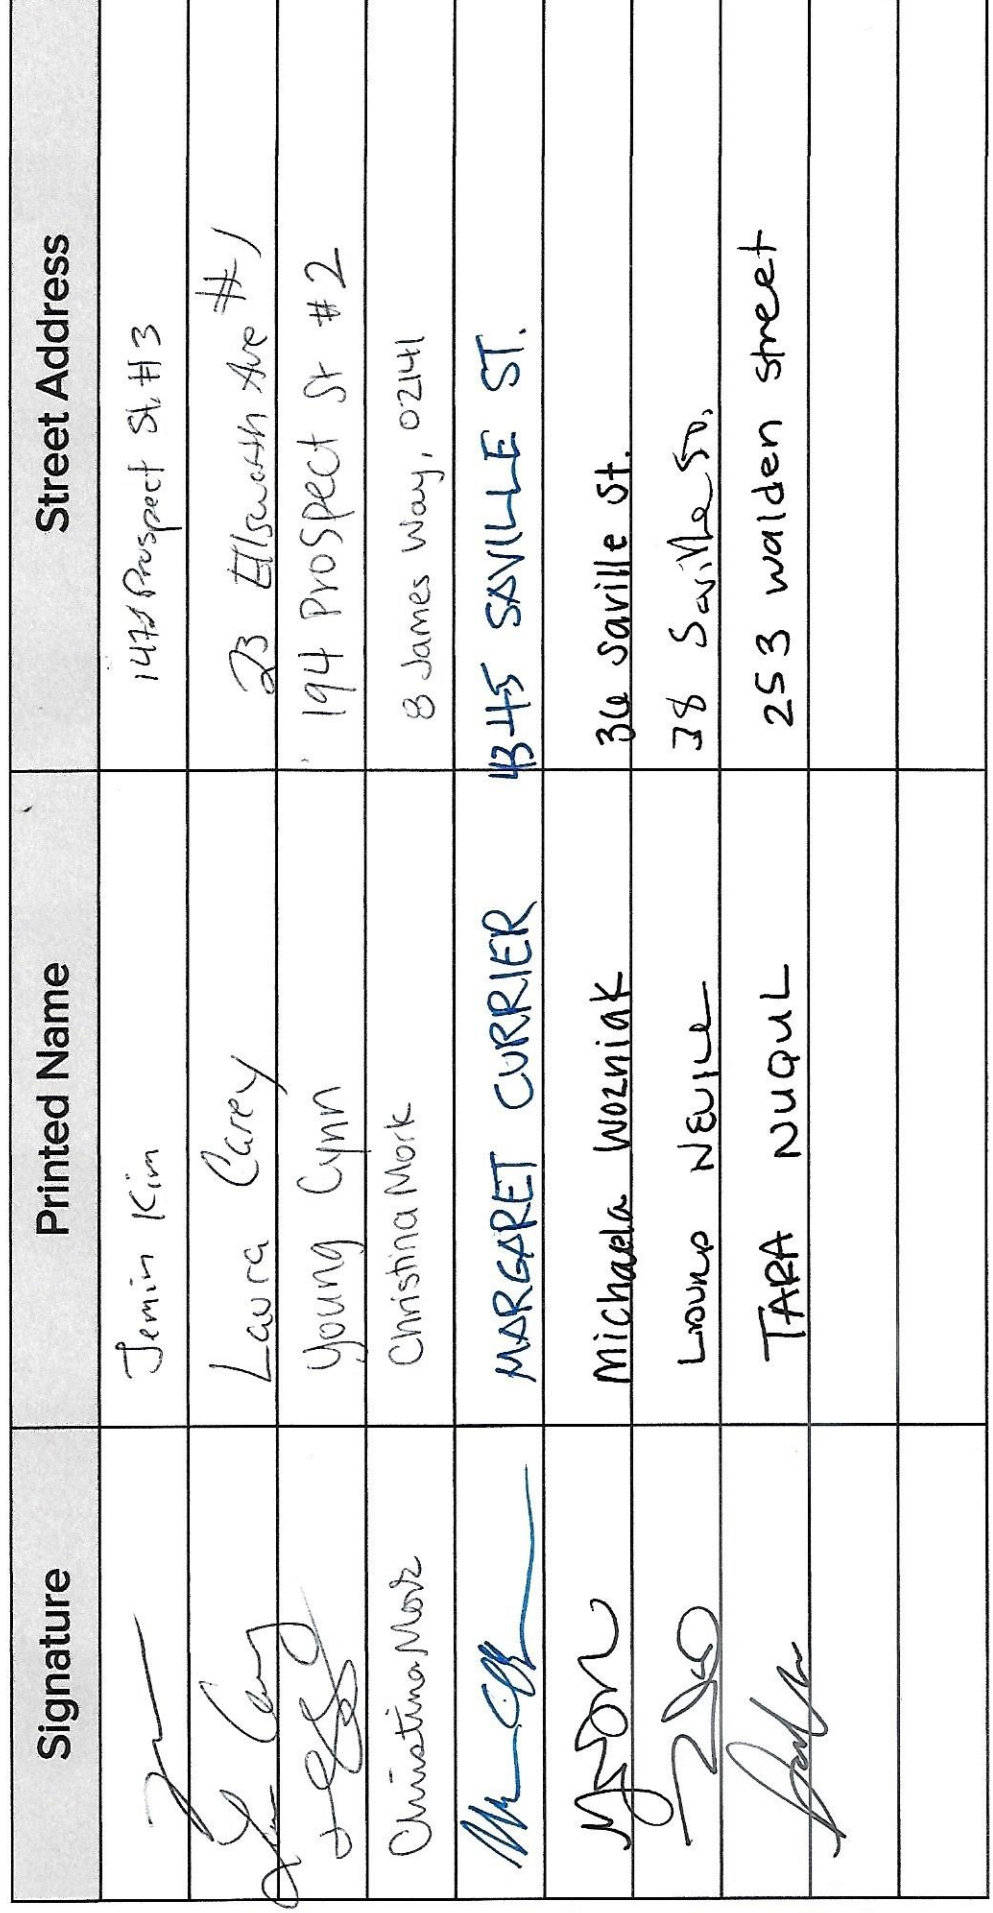 Signature Printed Name Street Address
Jemin Kim Prospect St. #3
Laura Carey 23 Ellsworth Ave #1
Young Cynn 194 Prospect St #2
Christina Mork Christina Mork 8 James Way, 02141
MARGARET CURRIER 43-45 SAVILLE ST.
Michaela Wozniak 36 Saville St.
NEVILLE 38 Saville St.
TARA NUQUL 253 Walden Street